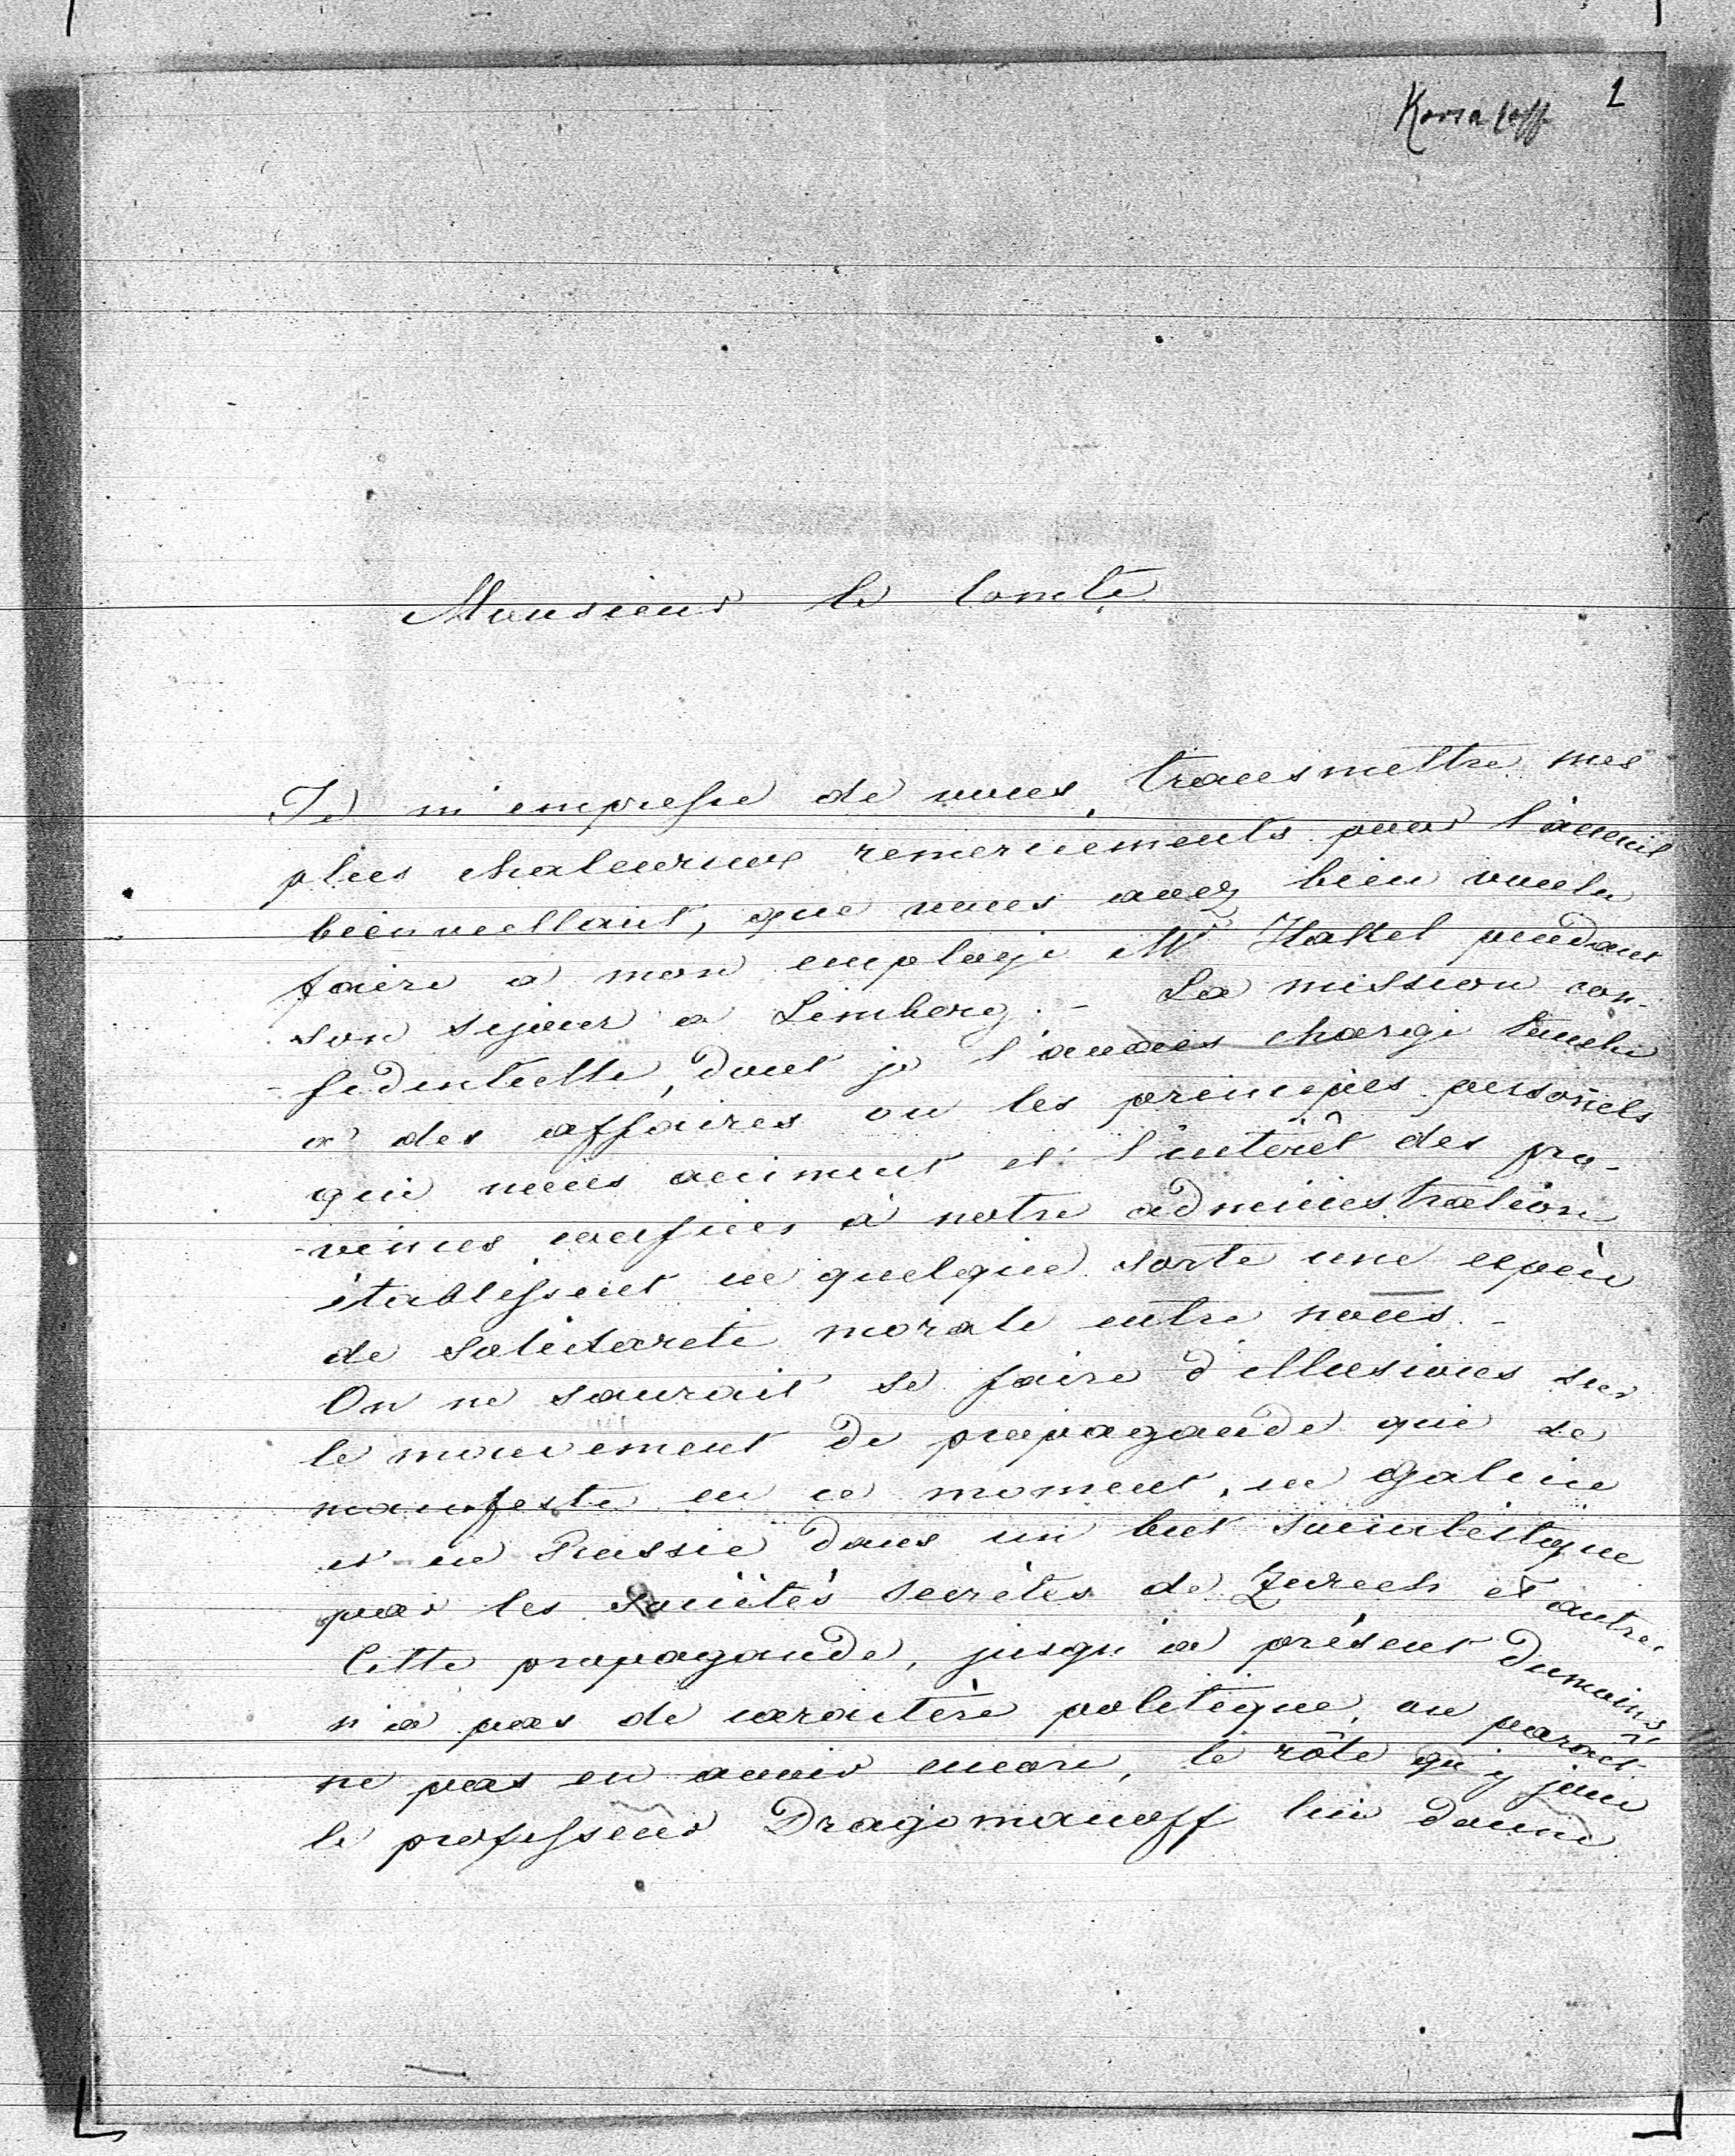 1
Monsieur le Comte
Je m'empresse de vous transmettre mes
plus chaleureux remerciements pour l'acceuil
bienveillant, que vous avez bien voulu
faire à mon employé Mr pendant
son séjour a Lemberg. - La mission con-
-fidentielle, dont je l'avais chargé touche
a des affaires ou les principes personels
qui nous animent et l'interêt des pro-
-vinces confiées à notre administration
établissent en quelque sorte une espèce
de solidarité morale entre nous. -
On ne saurait se faire d'illusions sur
le mouvement de propagande qui se
manifeste en ce moment, en Galicie
et en Russie dans un but socialistique
par les sociétés secrètes de Zurich et autres
Cette propagande, jusqu'a présent dumoins
n'a pas de caractère politique, ou parait
ne pas en avoir encore, le rôle qu'y joue
le professeur Dragomanoff lui donne